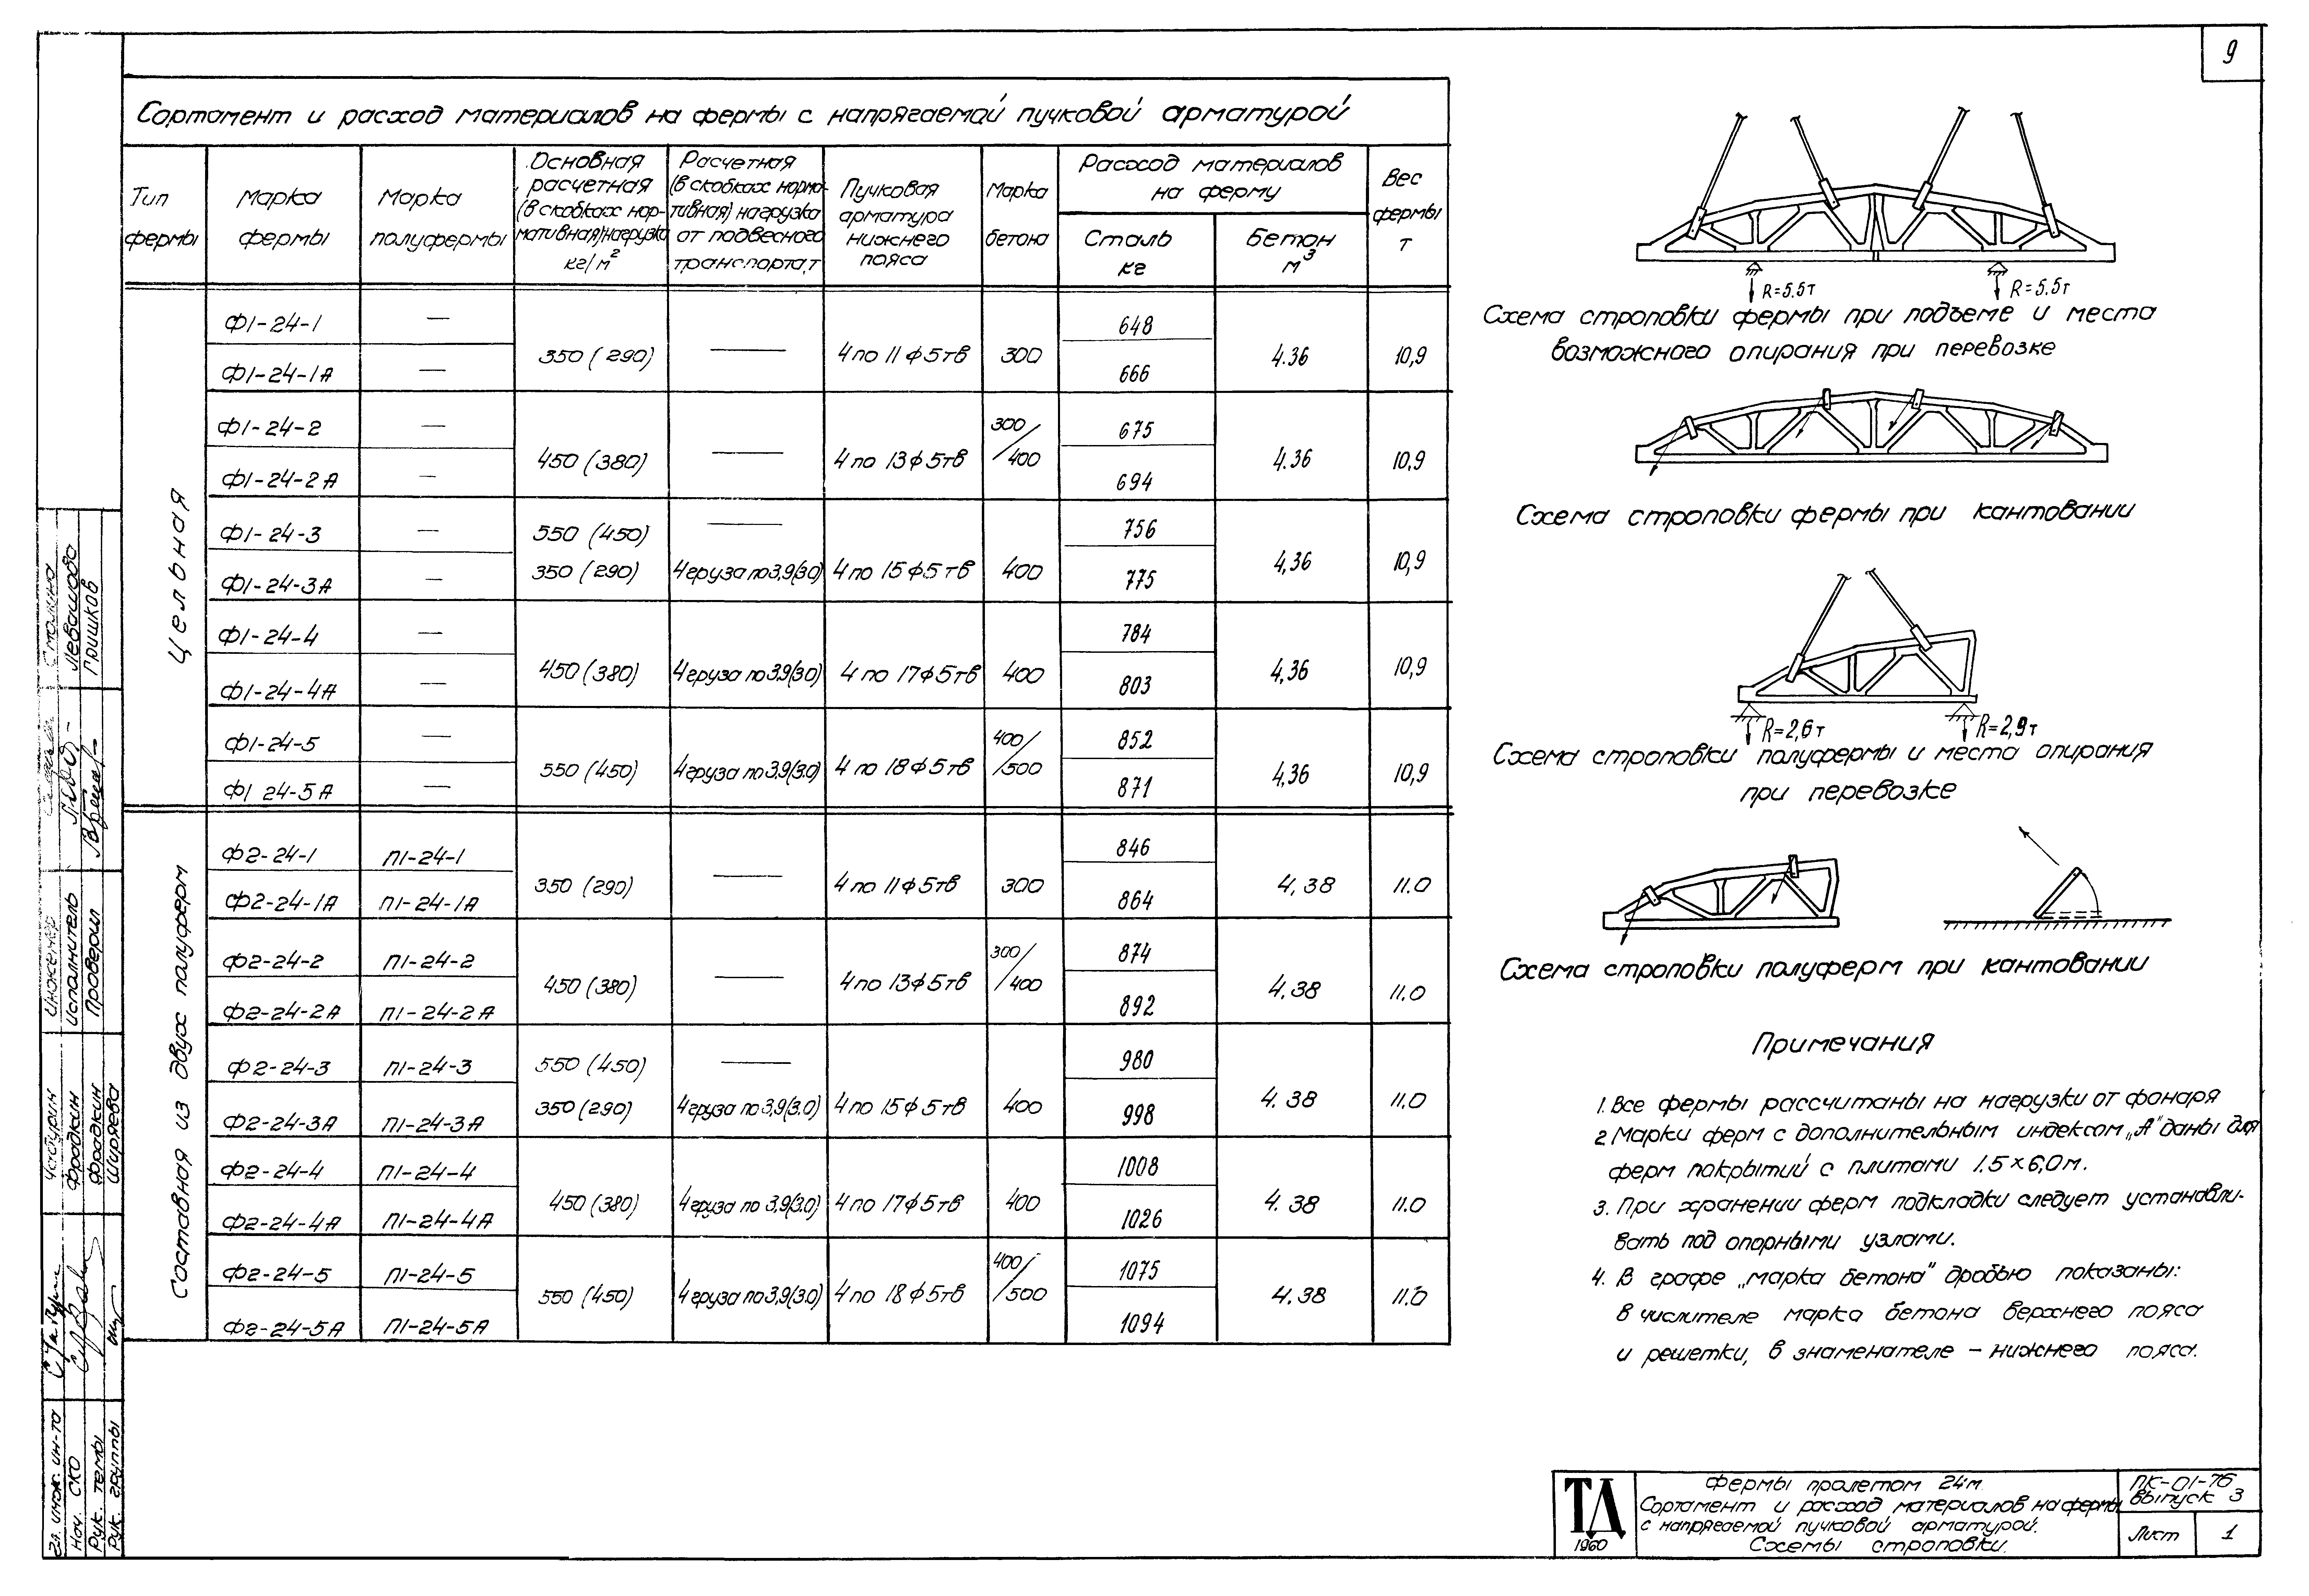 9
Сортамент и расход материалов на фермы с напрягаемой пучковой арматурой
Тип фермы
Марка фермы
Марка полуфермы
Основная расчетная (в скобках нормативная) нагрузка кг/м²
Расчетная (в скобках нормативная) нагрузка от подвесного транспорта, т
Пучковая арматура нижнего пояса
Марка бетона
Расход материалов на ферму
Сталь кг
Бетон м³
Вес фермы т
Цельная
Ф1-24-1 — 648
350 (290) — 4 по 11ф5тв 300 4.36 10,9
Ф1-24-1А — 666
Ф1-24-2 — 675
450 (380) — 4 по 13ф5тв 300/400 4.36 10,9
Ф1-24-2А — 694
Ф1-24-3 — 550 (450) — 756
350 (290) 4 груза по 3,9(3.0) 4 по 15ф5тв 400 4,36 10,9
Ф1-24-3А — 775
Ф1-24-4 — 784
450 (380) 4 груза по 3,9(3.0) 4 по 17ф5тв 400 4,36 10,9
Ф1-24-4А — 803
Ф1-24-5 — 852
550 (450) 4 груза по 3,9(3.0) 4 по 18ф5тв 400/500 4,36 10,9
Ф1 24-5А — 871
Составная из двух полуферм
Ф2-24-1 П1-24-1 846
350 (290) — 4 по 11ф5тв 300 4,38 11.0
Ф2-24-1А П1-24-1А 864
Ф2-24-2 П1-24-2 874
450 (380) — 4 по 13ф5тв 300/400 4.38 11.0
Ф2-24-2А П1-24-2А 892
Ф2-24-3 П1-24-3 550 (450) — 980
350 (290) 4 груза по 3,9(3.0) 4 по 15ф5тв 400 4.38 11.0
Ф2-24-3А П1-24-3А 998
Ф2-24-4 П1-24-4 1008
450 (380) 4 груза по 3,9(3.0) 4 по 17ф5тв 400 4.38 11.0
Ф2-24-4А П1-24-4А 1026
Ф2-24-5 П1-24-5 1075
550 (450) 4 груза по 3,9(3.0) 4 по 18ф5тв 400/500 4.38 11.0
Ф2-24-5А П1-24-5А 1094
R=5.5т R=5.5т
Схема строповки фермы при подъеме и места
возможного опирания при перевозке
Схема строповки фермы при кантовании
R=2,6т R=2,9т
Схема строповки полуфермы и места опирания
при перевозке
Схема строповки полуферм при кантовании
Примечания
1. Все фермы рассчитаны на нагрузки от фонаря
2 Марки ферм с дополнительным индексом „А" даны для
ферм покрытий с плитами 1.5×6,0м.
3. При хранении ферм подкладки следует устанавли-
вать под опорными узлами.
4. В графе „марка бетона" дробью показаны:
в числителе марка бетона верхнего пояса
и решетки, в знаменателе – нижнего пояса.
ТД
1960
Фермы пролетом 24м.
Сортамент и расход материалов на фермы
с напрягаемой пучковой арматурой.
Схемы строповки.
ПК-01-76
Выпуск 3
Лист 1
Гл. инж. ин-та Чабурин
Нач. СКО Фрадкин
Рук. темы Фрадкин
Рук. группы Ширяева
Инженер
Исполнитель Левашова
Проверил Гришков